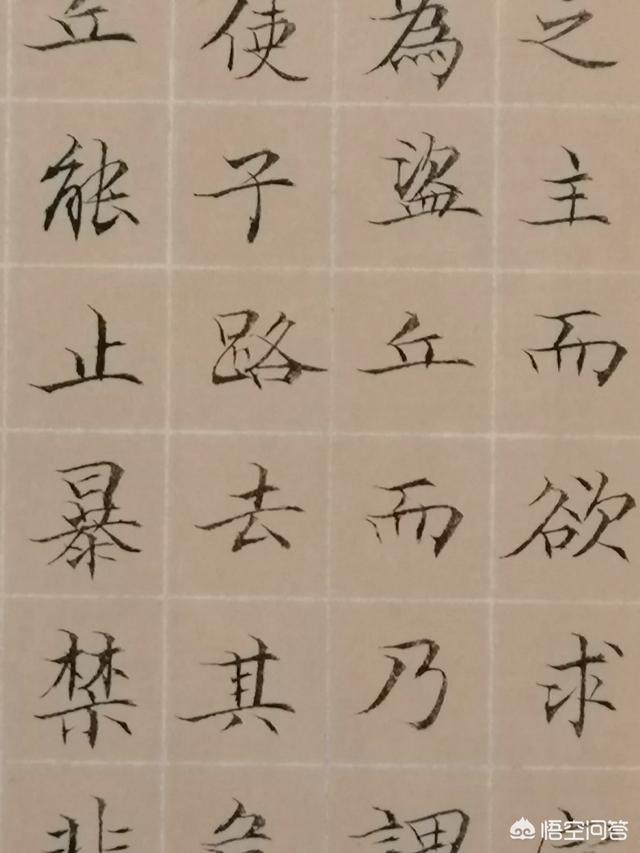 之主而欲求
為盜丘而乃謂
使子路去其危
丘能止暴禁非
悟空问答